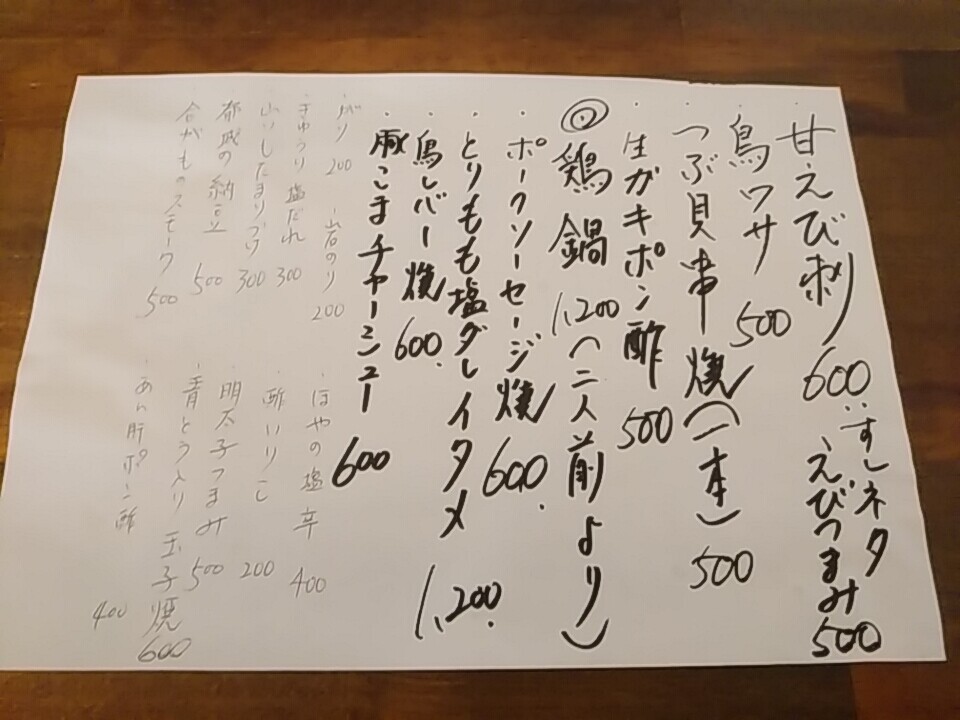 ・甘えび刺 600
・すしネタえびつまみ 500
・鳥ワサ 500
・つぶ貝串焼(一本) 500
・生ガキポン酢 500
◎鶏鍋 1,200(二人前より)
・ポークソーセージ焼 600.
・とりもも塩ダレイタメ 1,200.
・鳥レバー焼 600.
・豚こまチャーシュー 600
・がり 200
・岩のり 200
・きゅうり塩だれ 300
・山いもたまりづけ 300
・都城の納豆 500
・合がものスモーク 500
・ほやの塩辛 400
・酢いりこ 200
・明太子つまみ 500
・青とう入り玉子焼 600
・あん肝ポン酢 400